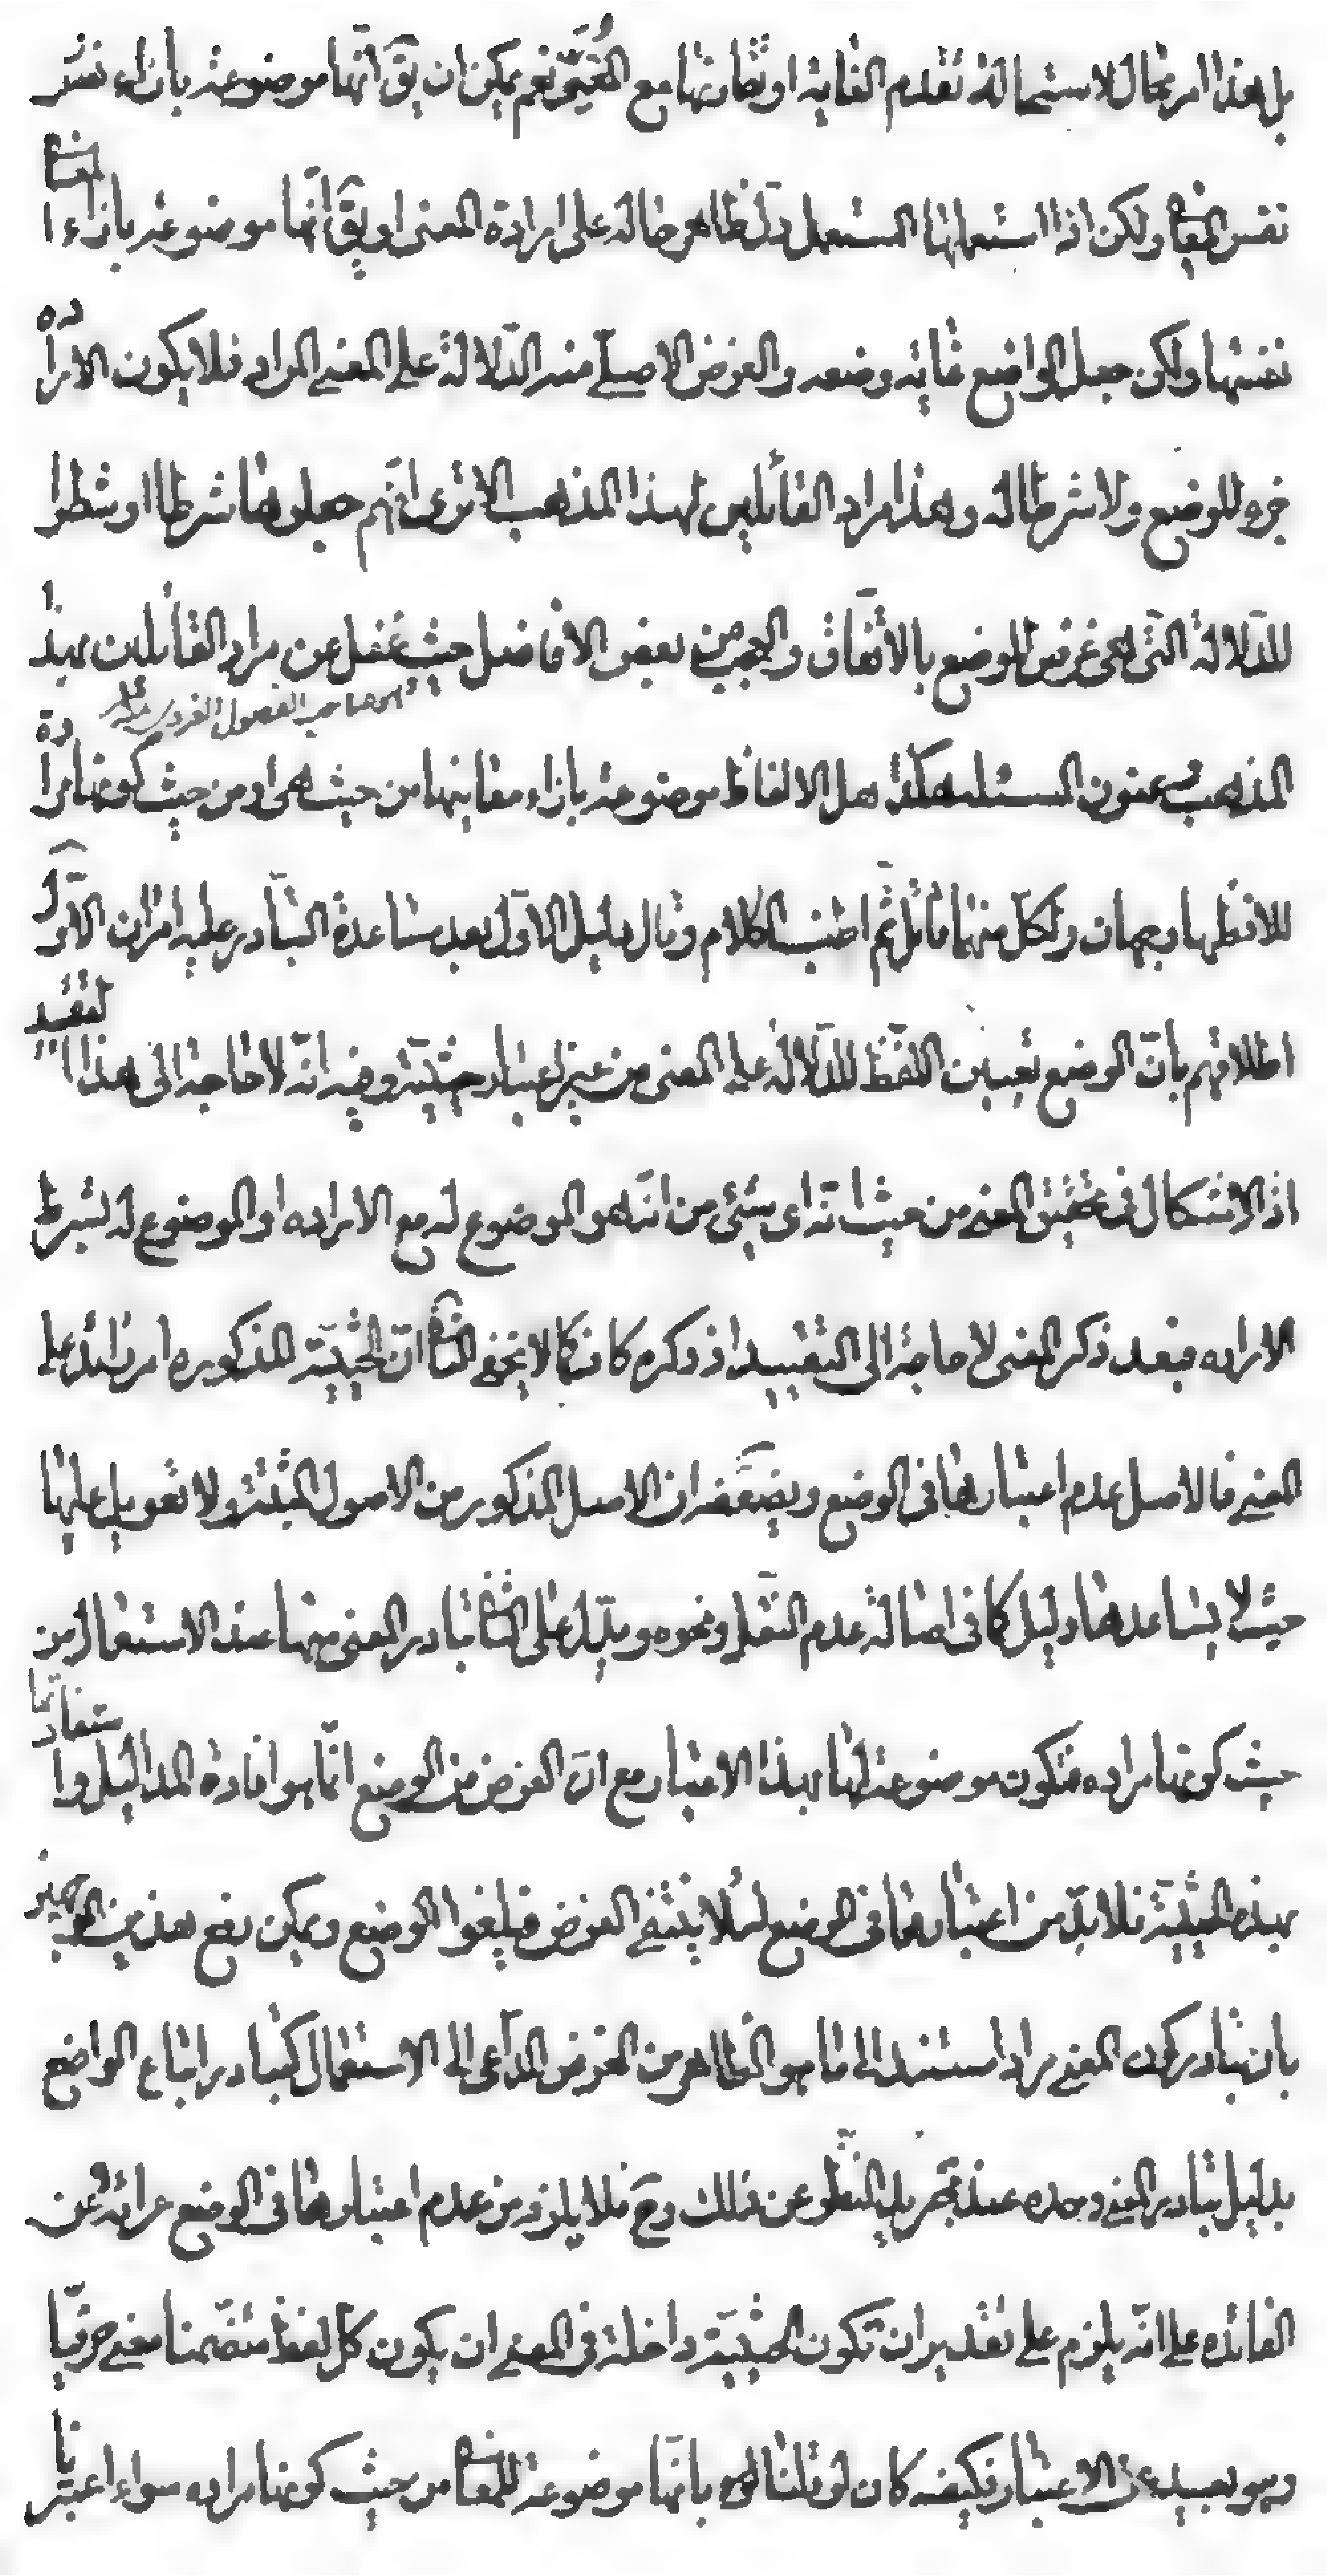 بل هذا امر محال لاستحالة تقدم الغاية او تقارنها مع المغيّى نعم يمكن ان يقٓ انّها موضوعة بازاء نفس
نفس المعانى ولكن اذا استعملها المستعمل دلّ ظاهر حاله على ارادة المعنى او يقٓ انّها موضوعة بازاء المعانى
نفسها ولكن جعل الواضع غاية وضعه والغرض الاصلى منه الدّلالة على المعنى المراد فلا يكون الارادة
جزء للوضع ولا شرطا له وهذا مراد القائلين لهذا المذهب الا ترى انّهم جعلوها شرطا او شطرا
للدّلالة الّتى هى غرض الوضع بالاتّفاق والعجب من بعض الافاضل حيث غفل عن مراد القائلين بهذا
هو صاحب الفصول الغروى
المذهب وعنون المسئلة هكذا هل الالفاظ موضوعة بازاء معانيها من حيث هى او من حيث كونها مرادة
للافظها وجهان ولكل منها قائل ثمّ اطنب الكلام وقال دليل الاوّل بعد مساعدة التّبادر عليه امران الاوّل
اطلاقهم بانّ الوضع تعيين اللّفظ للدّلالة على المعنى من غير اعتبار حيثيّة وفيه انّه لا حاجة الى هذا التقييد
اذ الاشكال فى تحقيق المعنى من حيث انّه اى شىء من انّه هو الموضوع له مع الاراده او الموضوع له بشرط
الاراده فبعد ذكر المعنى لا حاجة الى التقييد اذ ذكره كان كالا يخفى الثانى انّ الحيثيّة المذكوره امر زائد على
المعنى فالاصل عدم اعتبارها فى الوضع ويضعّفه ان الاصل المذكور من الاصول المثبتة ولا تعويل عليها
حيث لا يساعدها دليل كما فى اصالة عدم النّقل ونحوه ويدلّ على الثانى تبادر المعنى منها عند الاستعمال من
حيث كونها مراده فتكون موضوعة لها بهذا الاعتبار مع انّ الغرض من الوضع انّما هو افادة المداليل واستفادتها
بهذه الحيثيّة فلا بدّ من اعتبارها فى الوضع لئلا ينتفى الغرض فيلغوا الوضع ويمكن دفع هذين الوجهين
بان تبادر كون المعنى مرادا مستند الى ما هو الظاهر من الغرض الدّاعى الى الاستعمال كتبادر اتباع الواضع
بدليل تبادر المعنى وحده عند تجريد النّظر عن ذلك وحٓ فلا يلزم من عدم اعتبارها فى الوضع عرائه عن
الفائده على انّه يلزم على تقدير ان تكون الحيثيّة داخلة فى المعنى ان يكون كل لفظ متضمّنا معنى حرفيّا
وهو بعيد عن الاعتبار وكيف كان لو قلنا بانّها موضوعة للمعانى من حيث كونها مراده سواء اعتبرنا